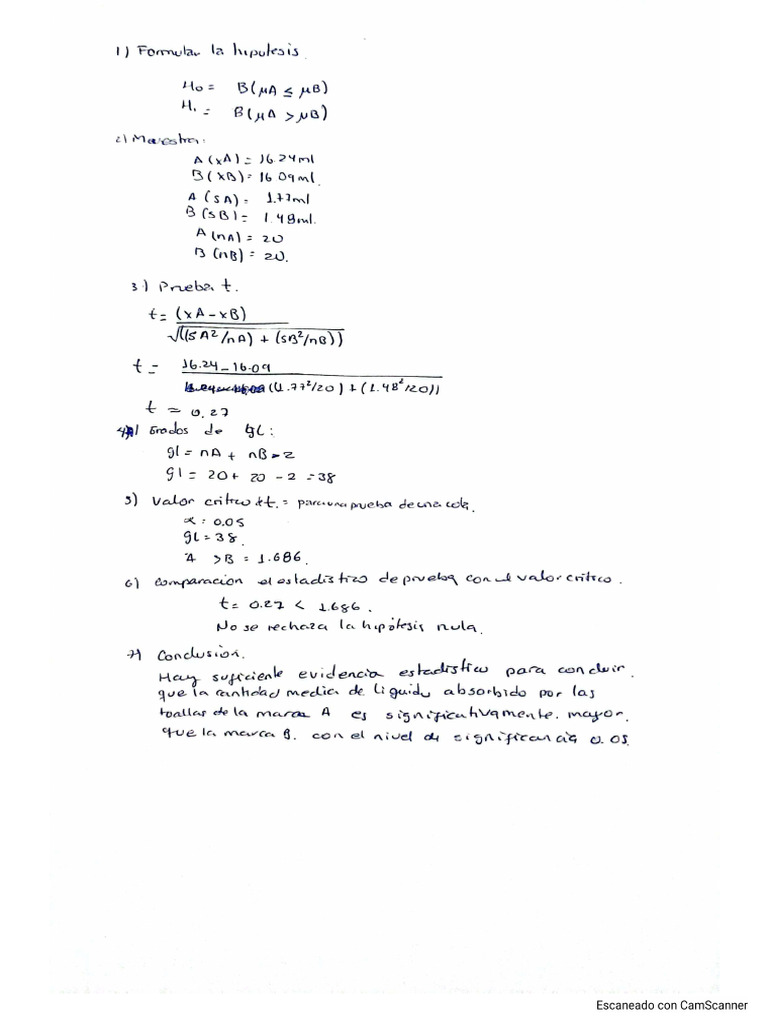 1) Formular la hipotesis.
Ho = B(μA ≤ μB)
H1 = B(μA > μB)
2) Muestra:
A (xA) = 16.24ml
B (xB) = 16.09ml.
A (sA) = 1.77ml
B (sB) = 1.48ml.
A (nA) = 20
B (nB) = 20.
3) Prueba t.
t = (xA - xB)
√((sA²/nA) + (sB²/nB))
t = 16.24 - 16.09
((1.77²/20) + (1.48²/20))
t = 0.27
4) Grados de GL:
gl = nA + nB - 2
gl = 20 + 20 - 2 = 38
5) Valor critico t. = para una prueba de una cola.
α: 0.05
gL = 38.
A >B = 1.686.
6) Comparación el estadistico de prueba con el valor critico.
t = 0.27 < 1.686.
No se rechaza la hipótesis nula.
7) Conclusion.
Hay suficiente evidencia estadistica para concluir.
que la cantidad media de liquido absorbido por las
toallas de la marca A es significativamente. mayor.
que la marca B. con el nivel de significancia 0.05.
Escaneado con CamScanner